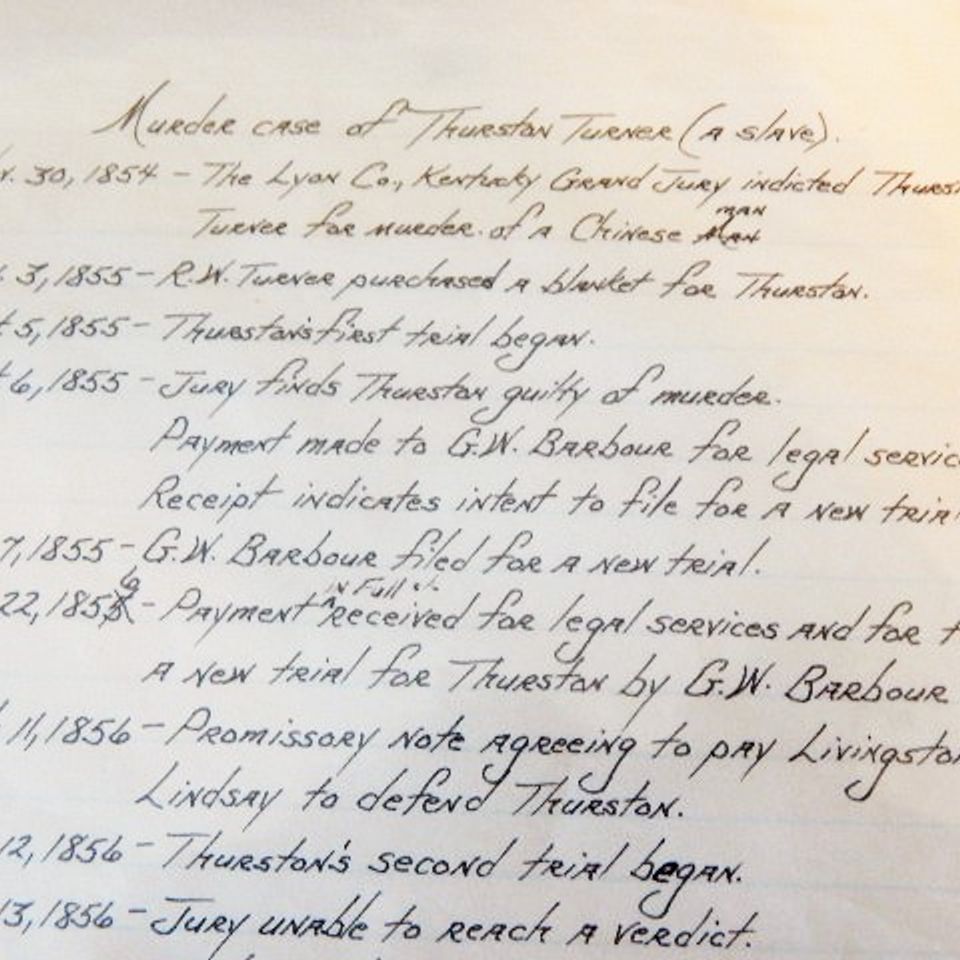 Murder case of Thurston Turner (a slave).
30, 1854 - The Lyon Co., Kentucky Grand Jury indicted Thurst
Turner for murder of a Chinese man
3, 1855 - R.W. Turner purchased a blanket for Thurston.
5, 1855 - Thurston's first trial began.
6, 1855 - Jury finds Thurston guilty of murder.
Payment made to G.W. Barbour for legal servic
Receipt indicates intent to file for a new tria
7, 1855 - G.W. Barbour filed for a new trial.
22, 1856 - Payment in full received for legal services and for
a new trial for Thurston by G.W. Barbour
11, 1856 - Promissory note agreeing to pay Livingston
Lindsay to defend Thurston.
12, 1856 - Thurston's second trial began.
13, 1856 - Jury unable to reach a verdict.